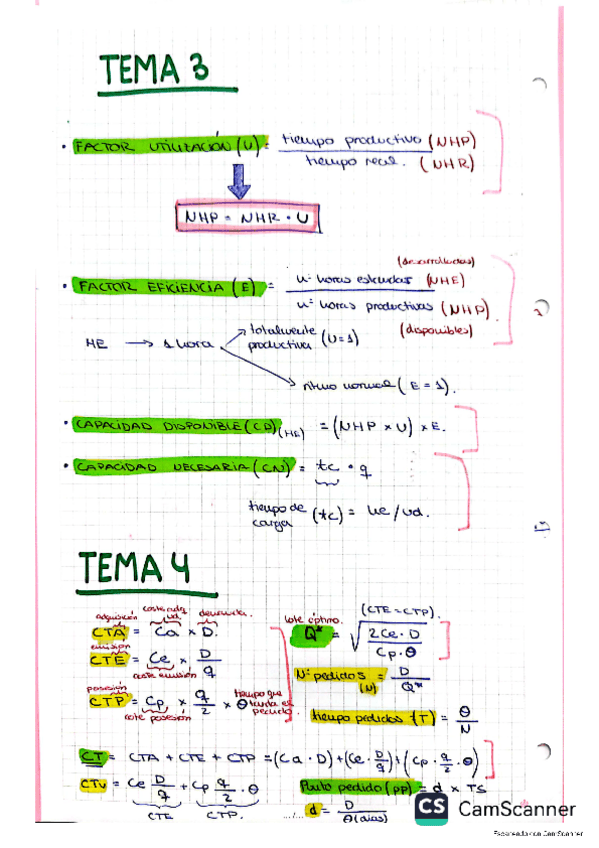 TEMA 3
• FACTOR UTILIZACIÓN (U) = tiempo productivo (NHP)
tiempo real. (NHR)
NHP = NHR · U
(desarrolladas)
• FACTOR EFICIENCIA (E) = nº horas estándar (NHE)
nº horas productivas (NHP)
(disponibles)
HE → 1 hora
totalmente productiva (U=1)
ritmo normal (E = 1).
• CAPACIDAD DISPONIBLE (CD) (HE) = (NHP x U) x E.
• CAPACIDAD NECESARIA (CN) = tc · q
tiempo de carga (tc) = he/ud.
TEMA 4
adquisición coste adq. ud. demanda.
CTA = Ca x D.
emisión
CTE = Ce x D/q
coste emisión
posesión
CTP = Cp x q/2 x θ tiempo que tarda el pedido.
coste posesión
lote óptimo. (CTE = CTP).
Q* = √ 2Ce · D / Cp · θ
Nº pedidos (N) = D/Q*
tiempo pedidos (T) = θ/N
CT = CTA + CTE + CTP = (Ca · D) + (Ce · D/q) + (Cp · q/2 · θ)
CTv = Ce D/q + Cp q/2 · θ
CTE CTP.
Punto pedido (PP) = d x TS
d = D/θ(días)
CS CamScanner
Escaneado con CamScanner